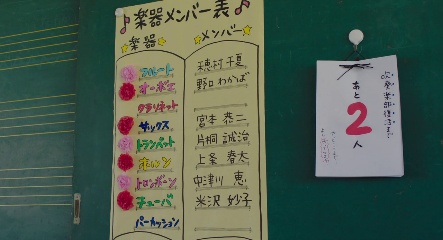 ♪楽器メンバー表♪
楽器 メンバー
フルート 穂村千夏
オーボエ 野口わかば
クラリネット
サックス 宮本恭二
トランペット 片桐誠治
ホルン 上条春太
トロンボーン 中津川恵
チューバ 米沢妙子
パーカッション
吹奏楽部復活まで
あと
2
人